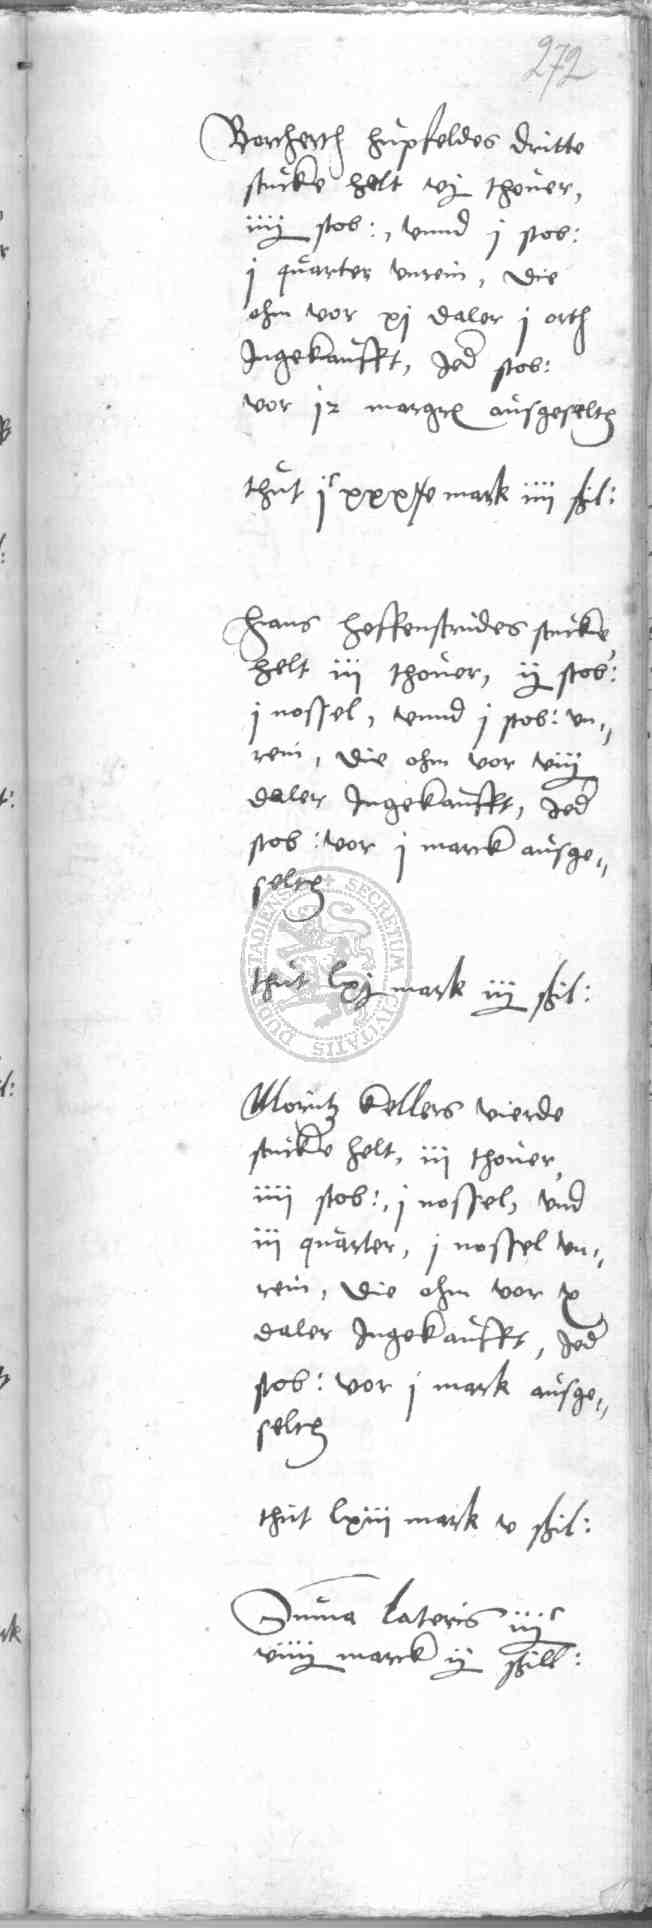 272
Borcherth Hupfeldes dritte
stucke helt vj thover,
iiij stob:, vnnd j stob:
j quarter vnrein, die
ohm vor xj daler j orth
Ingekaufft, Jed stob:
vor j½ margk ausgeseltz
thut jᶜ xxx mark iiij ßil:
Hans Heffenstrides stucke,
helt iij thover, ij stob:
j nossel, vnnd j stob: vn„
rein, die ohm vor viij
daler Ingekaufft, Jed
stob: vor j marck ausge„
seltz
thut lxj mark iij ßil:
Moritz Kellers vierde
stucke helt, iij thover,
iiij stob:, j nossel, vnd
iij quarter, j nossel vn„
rein, die ohm vor x
daler Ingekaufft, Jed
stob: vor j mark ausge„
seltz
thut lxiij mark v ßil:
Suma lateris iijᶜ
viiij marck ij ßill:
SECRETUM CIVITATIS DUDERSTADIENSIS